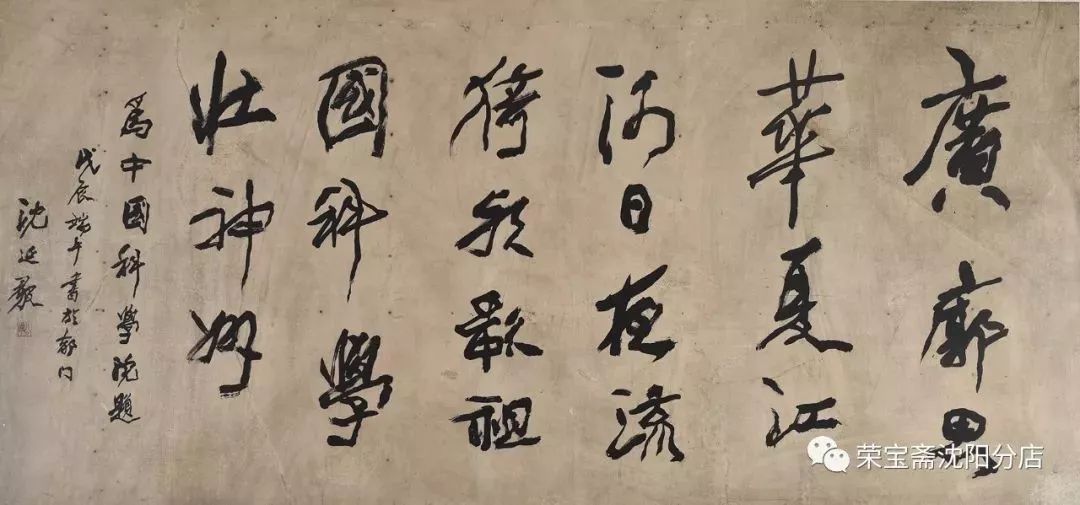 廣廓
華夏江
河日夜流
猗祖
國科學
壯神州
爲中國科學院題
戊辰端午書於都門
沈延毅
荣宝斋沈阳分店